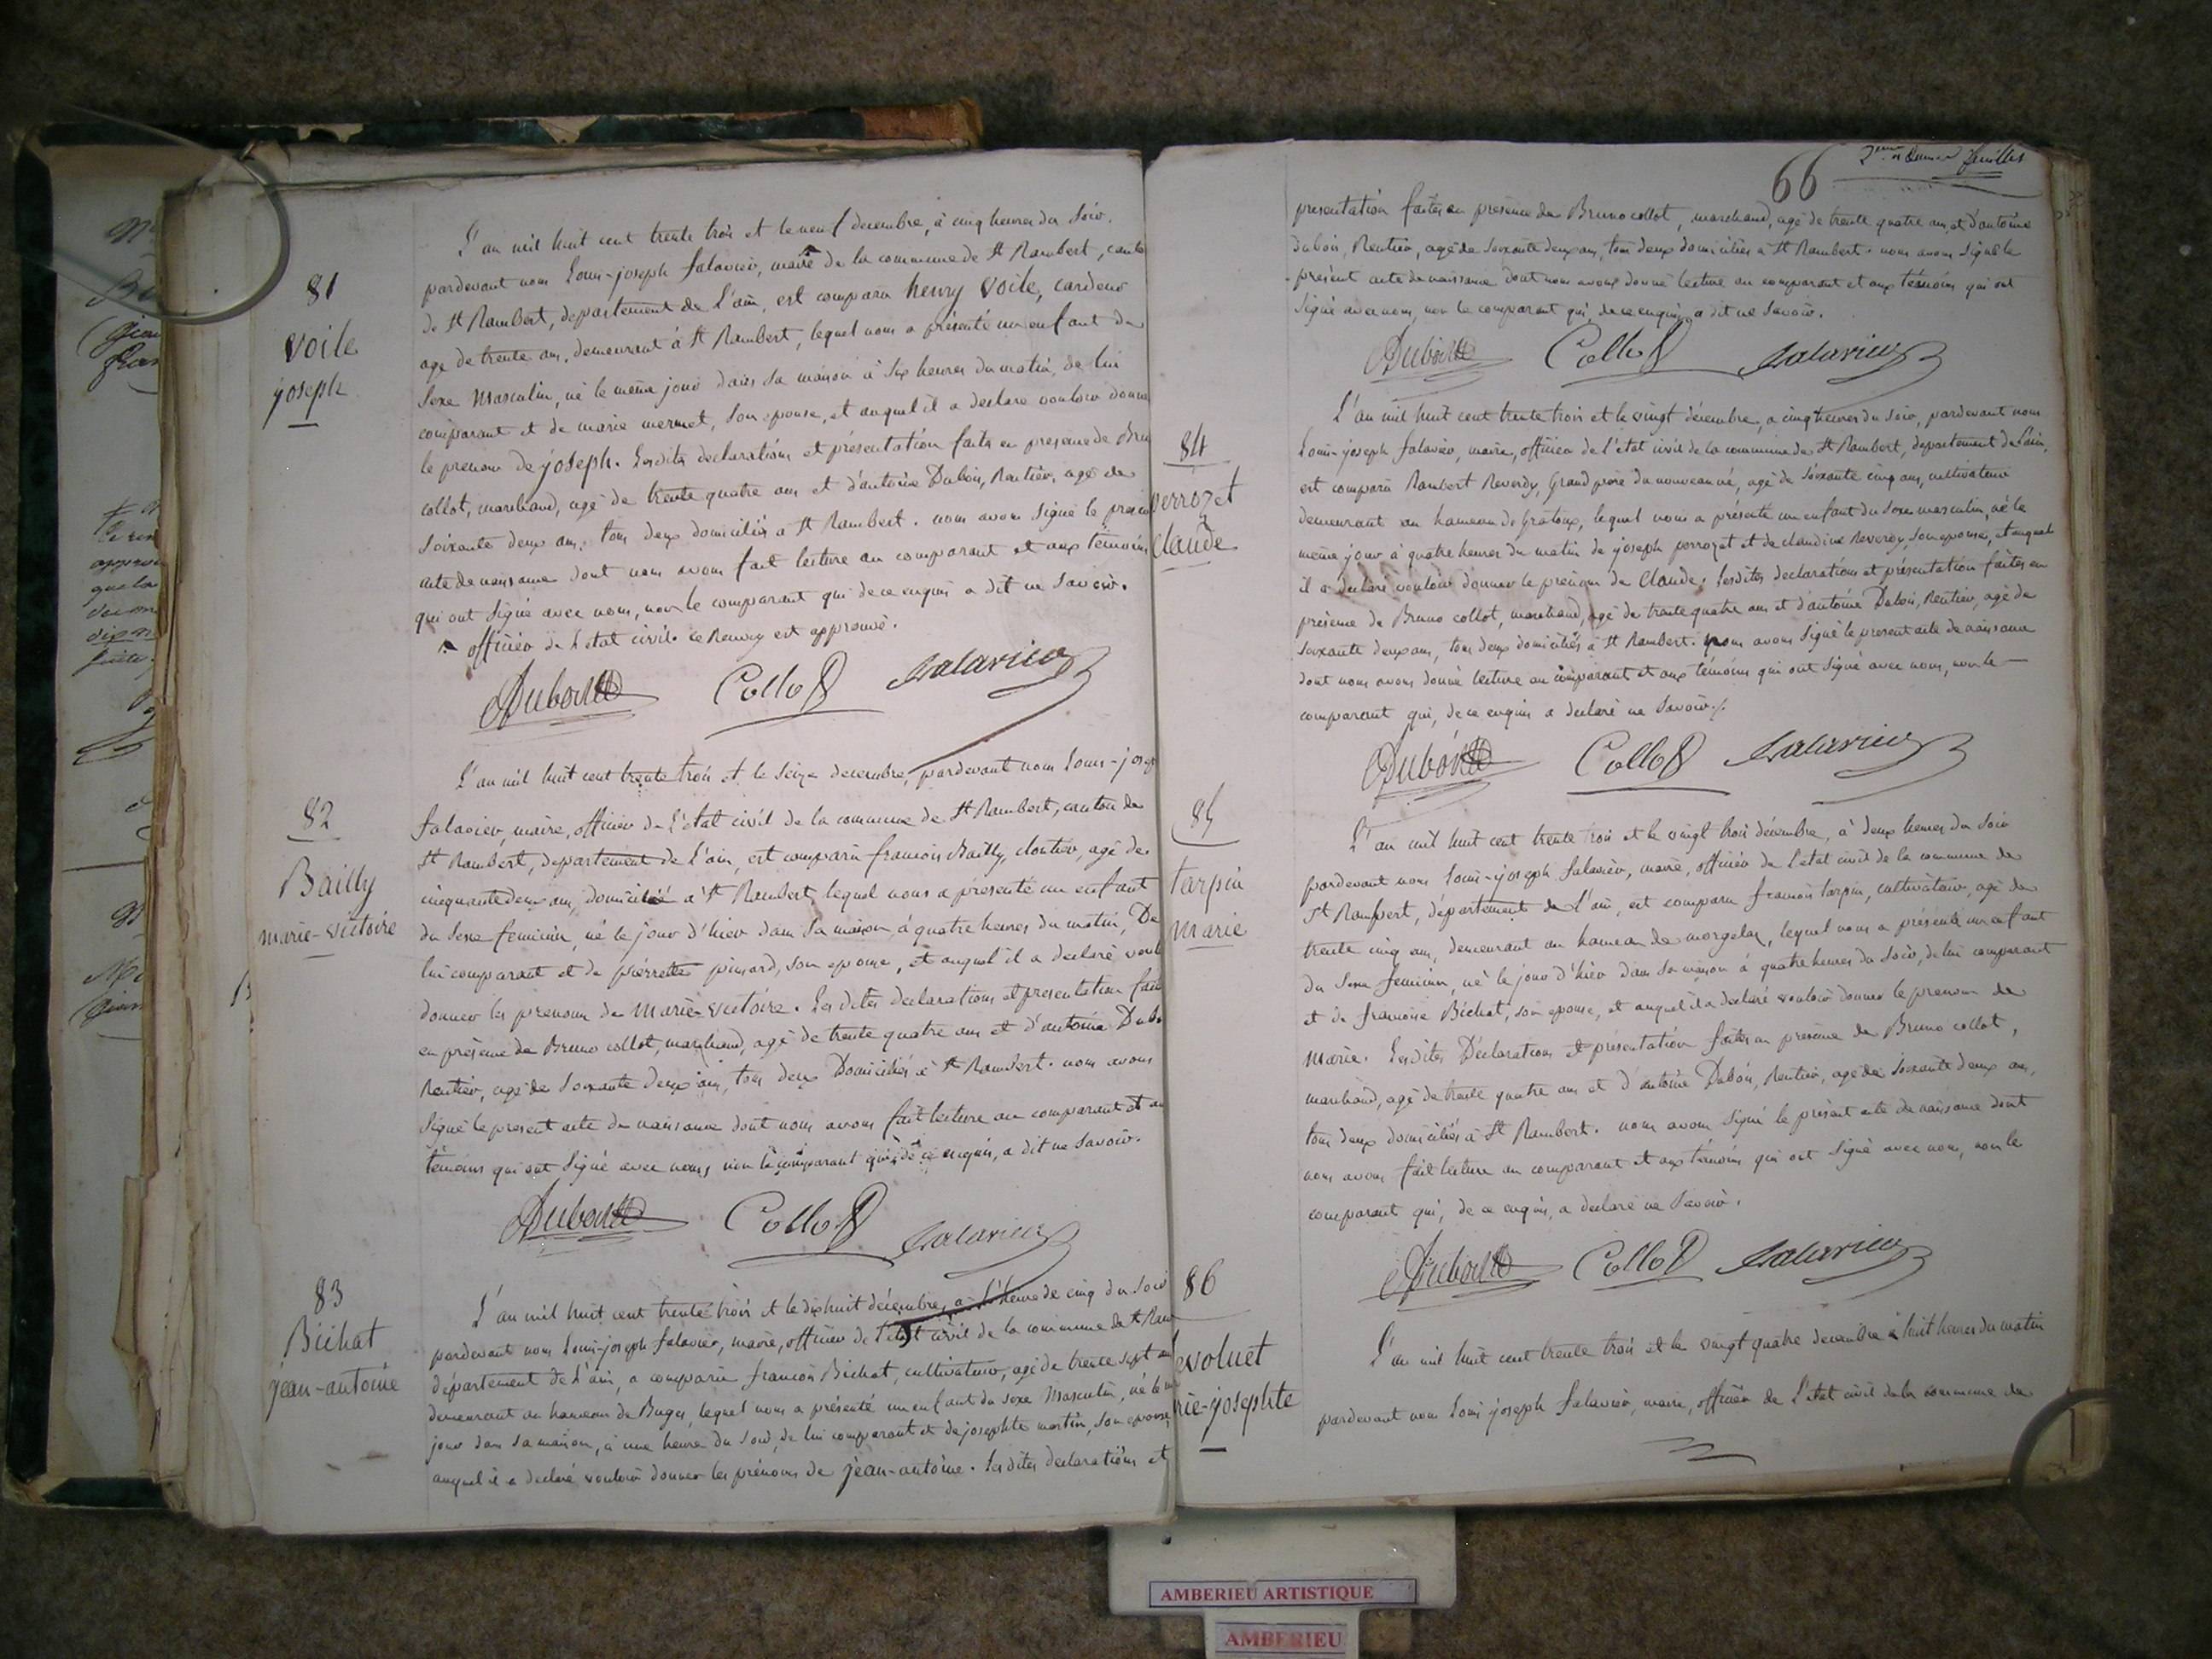 81
voile
joseph
L'an mil huit cent trente trois et le neuf decembre, à cinq heures du soir.
pardevant nous Louis-joseph falavier, maire de la commune de St Rambert, canton
de St Rambert, departement de L'ain, est comparu henry voile, cardeur
agé de trente ans, demeurant à St Rambert, lequel nous a présenté un enfant du
sexe Masculin, né le meme jour dans sa maison à six heures du matin, de lui
comparant et de marie mermet, son epouse, et auquel il a declaré vouloir donner
le prenom de joseph. Les dites declarations et présentation faites en presence de Bru
collot, marchand, agé de trente quatre ans et d'antoine Dubois, Rentier, agé de
soixante deux ans, tous deux domiciliés a St Rambert. nous avons signé le
acte de naissance dont nous avons fait lecture au comparant et aux témoins
qui ont signé avec nous, non le comparant qui de ce enquis a dit ne savoir.
officier de l'etat civil. ce Renvoy est approuvé.
Dubois Collot falavier
82
Bailly
marie-victoire
L'an mil huit cent trente trois et le seize decembre, pardevant nous Louis-josep
falavier, maire, officier de L'etat civil de la commune de St Rambert, canton de
St Rambert, departement de L'ain, est comparu francois Bailly, cloutier, agé de
cinquante deux ans, domicilié a St Rambert, lequel nous a présenté un enfant
du sexe feminin, né le jour d'hier dans sa maison, à quatre heures du matin, De
lui comparant et de pierrette pinard, son epouse, et auquel il a declaré voul
donner les prenoms de Marie-victoire. Les dites declarations et presentation fait
en présence de Bruno collot, marchand, agé de trente quatre ans et d'antoine Dubo
Rentier, agé de soixante deux ans, tous deux Domiciliés à St Rambert. nous avons
signé le present acte de naissance dont nous avons fait lecture au comparant et au
témoins qui ont signé avec nous, non le comparant qui, de ce enquis, a dit ne savoir.
Dubois Collot falavier
83
Bichat
jean-antoine
L'an mil huit cent trente trois et le dix huit décembre, a L'heure de cinq du soir
pardevant nous Louis-joseph falavier, maire, officier de l'etat civil de la commune de St Ram
département de L'ain, a comparu francois Bichat, cultivateur, agé de trente sept an
demeurant au hameau de Buges, lequel nous a présenté un enfant du sexe Masculin, né le
jour dans sa maison, à une heure du soir, de lui comparant et de josephte martin, son epouse,
auquel il a declaré vouloir donner les prénoms de jean-antoine. Les dites declarations et
66
2eme et dernier feuillet
presentation faites en presence de Bruno collot, marchand, agé de trente quatre ans, et d'antoine
dubois, Rentier, agé de soixante deux ans, tous deux domiciliés a St Rambert. nous avons signé le
présent acte de naissance dont nous avons donné lecture au comparant et aux témoins qui ont
signé avec nous, non le comparant qui, de ce enquis, a dit ne savoir.
Dubois Collot falavier
84
perrozet
Claude
L'an mil huit cent trente trois et le vingt décembre, a cinq heures du soir, pardevant nous
Louis-joseph falavier, maire, officier de l'etat civil de la commune de St Rambert, departement de L'ain,
est comparu Rambert Reverdy, Grand père du nouveau né, agé de soixante cinq ans, cultivateur
demeurant au hameau de Gratoux, lequel nous a présenté un enfant du sexe masculin, né le
même jour à quatre heures du matin de joseph perrozet et de claudine Reverdy, son epouse, et auquel
il a declaré vouloir donner le prénom de Claude. Les dites declarations et présentation faites en
présence de Bruno collot, marchand, agé de trente quatre ans et d'antoine Dubois, Rentier, agé de
soixante deux ans, tous deux domiciliés à St Rambert. nous avons signé le present acte de naissance
dont nous avons donné lecture au comparant et aux témoins qui ont signé avec nous, non le
comparant qui, de ce enquis a declaré ne savoir./.
Dubois Collot falavier
85
tarpin
Marie
L'an mil huit cent trente trois et le vingt trois décembre, à deux heures du soir
pardevant nous Louis-joseph falavier, maire, officier de l'etat civil de la commune de
St Rambert, département de L'ain, est comparu francois tarpin, cultivateur, agé de
trente cinq ans, demeurant au hameau de morgelas, lequel nous a présenté un enfant
du sexe feminin, né le jour d'hier dans sa maison à quatre heures du soir, de lui comparant
et de francoise Bichat, son epouse, et auquel il a declaré vouloir donner le prenom de
Marie. Les dites Déclarations et présentation faites en presence de Bruno collot,
marchand, agé de trente quatre ans et d'antoine Dubois, Rentier, agé de soixante deux ans,
tous deux domiciliés à St Rambert. nous avons signé le présent acte de naissance dont
nous avons fait lecture au comparant et aux témoins qui ont signé avec nous, non le
comparant qui, de ce enquis, a declaré ne savoir.
Dubois Collot falavier
86
evoluet
rie-josephte
L'an mil huit cent trente trois et le vingt quatre decembre à huit heures du matin
pardevant nous Louis joseph falavier, maire, officier de L'etat civil de la commune de
AMBERIEU ARTISTIQUE
AMBERIEU